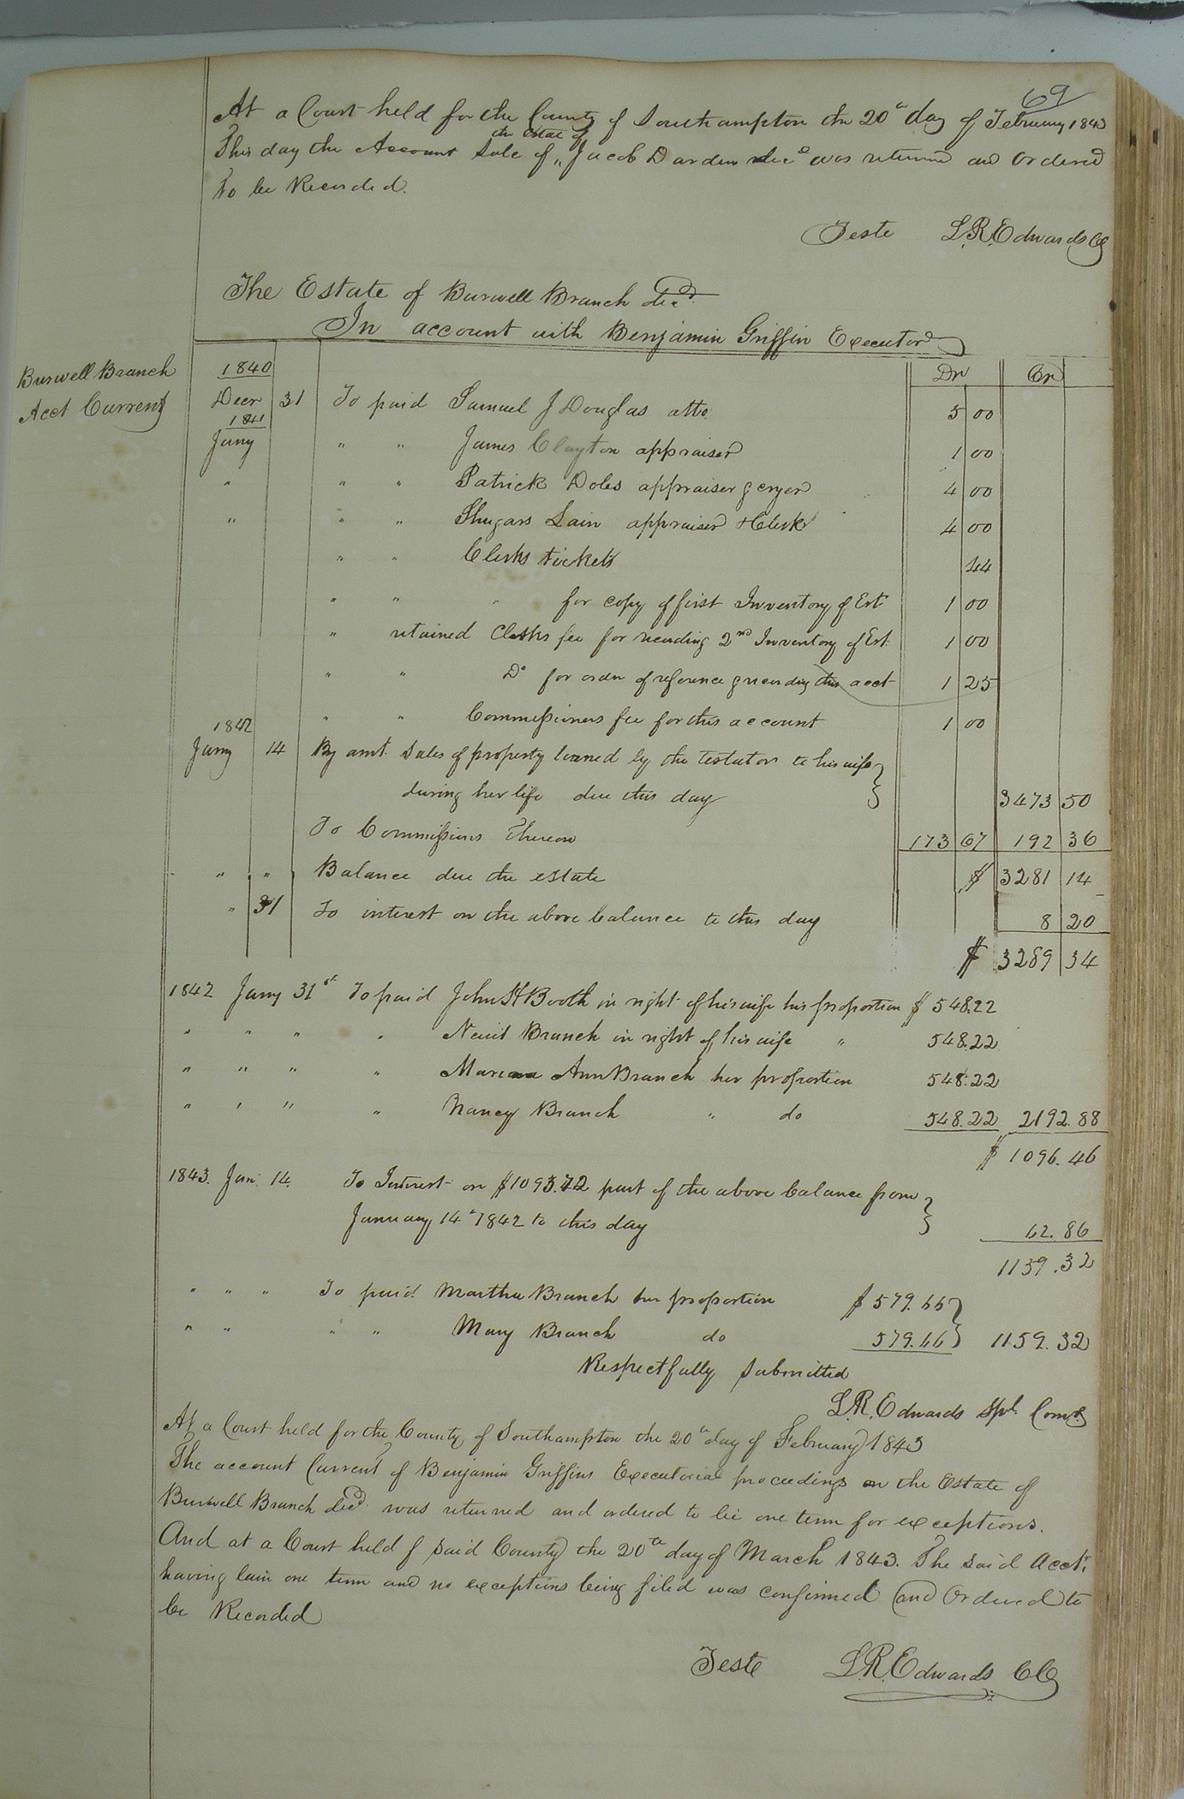 69
At a Court held for the County of Southampton the 20th day of February 1843
This day the Account Sale of the Estate of Jacob Darden decd was returned and Ordered
to be Recorded.
Teste L.R. Edwards CC
The Estate of Burwell Branch decd
In account with Benjamin Griffin Executor
Burwell Branch
Acct Current
1840 Dr Cr
Decr 31 To paid Samuel J Douglas atto 5 00
1841
Jany " " James Clayton appraiser 1 00
" " " Patrick Doles appraiser & cryer 4 00
" " " Shugars Lain appraiser & Clerk 4 00
" " Clerks tickets 44
" " " for copy of first Inventory of Est 1 00
" retained Clerks fee for recording 2nd Inventory of Est. 1 00
" " Do for order of reference & recording this acct 1 25
" " Commissioners fee for this account 1 00
1842
Jany 14 By amt. Sales of property loaned by the testator to his wife
during her life due this day 3473 50
To Commissions Thereon 173 67 192 36
" " Balance due the estate $ 3281 14
" 31 To interest on the above balance to this day 8 20
$ 3289 34
1842 Jany 31st To paid John H Booth in right of his wife his proportion $ 548.22
" " " " Newit Branch in right of his wife " 548.22
" " " " Mariana Ann Branch her proportion 548.22
" " " " Nancy Branch " do 548.22 2192.88
$ 1096.46
1843. Jan. 14. To Interest on $1093.72 part of the above balance from
January 14th 1842 to this day 62.86
1159.32
" " " To paid Martha Branch her proportion $ 579.66
" " " " Mary Branch do 579.66 1159.32
Respectfully Submitted
L.R. Edwards Spl. Comr
At a Court held for the County of Southampton the 20th day of February 1843
The account Current of Benjamin Griffins Executorial proceedings on the Estate of
Burwell Branch decd. was returned and ordered to lie one term for exceptions.
And at a Court held f said County the 20th day of March 1843. The said Acct.
having lain one term and no exceptions being filed was confirmed and Ordered to
be Recorded
Teste L.R. Edwards CC